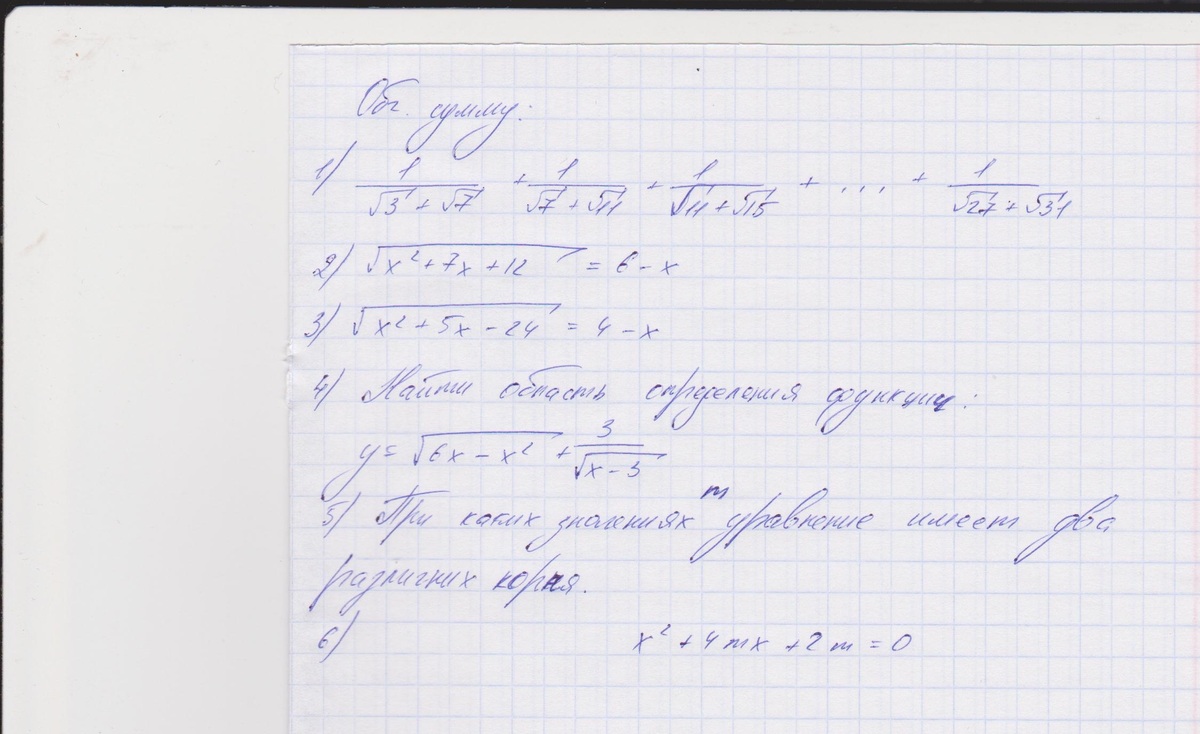 Обч. сумму:
1) 1/(√3 + √7) + 1/(√7 + √11) + 1/(√11 + √15) + ... + 1/(√27 + √31)
2) √(x² + 7x + 12) = 6 - x
3) √(x² + 5x - 24) = 4 - x
4) Найти область определения функции:
y = √(6x - x²) + 3/√(x - 3)
5) При каких значениях m уравнение имеет два
различних корня.
6) x² + 4mx + 2m = 0